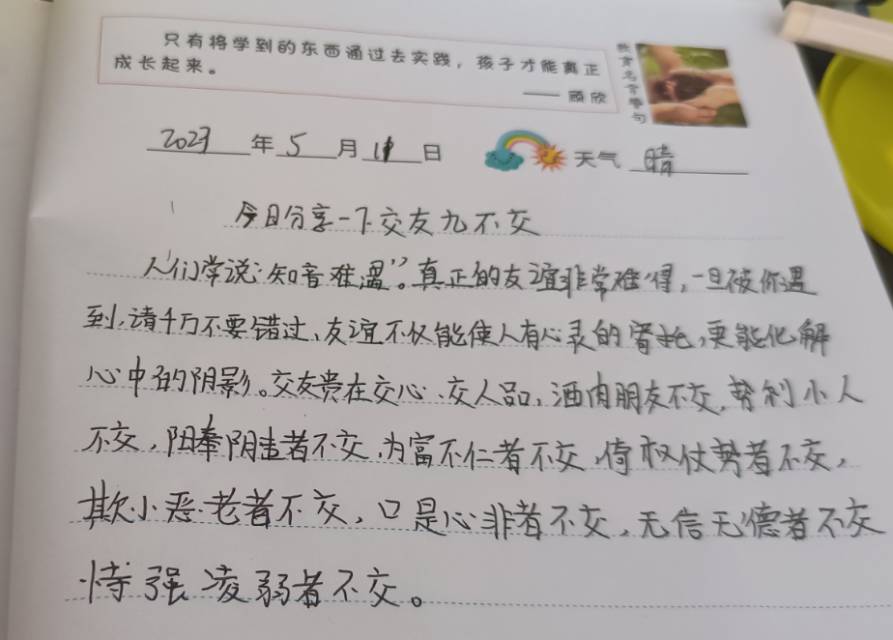 只有将学到的东西通过去实践，孩子才能真正
成长起来。
—— 顾欣
教育名言警句
2023年5月11日
天气 晴
今日分享一下交友九不交
人们常说："知音难遇"。真正的友谊非常难得，一旦被你遇
到，请千万不要错过、友谊不仅能使人有心灵的寄托，更能化解
心中的阴影。交友贵在交心、交人品，酒肉朋友不交，势利小人
不交，阳奉阴违者不交，为富不仁者不交，倚权仗势者不交，
欺小恶老者不交，口是心非者不交，无信无德者不交
恃强凌弱者不交。